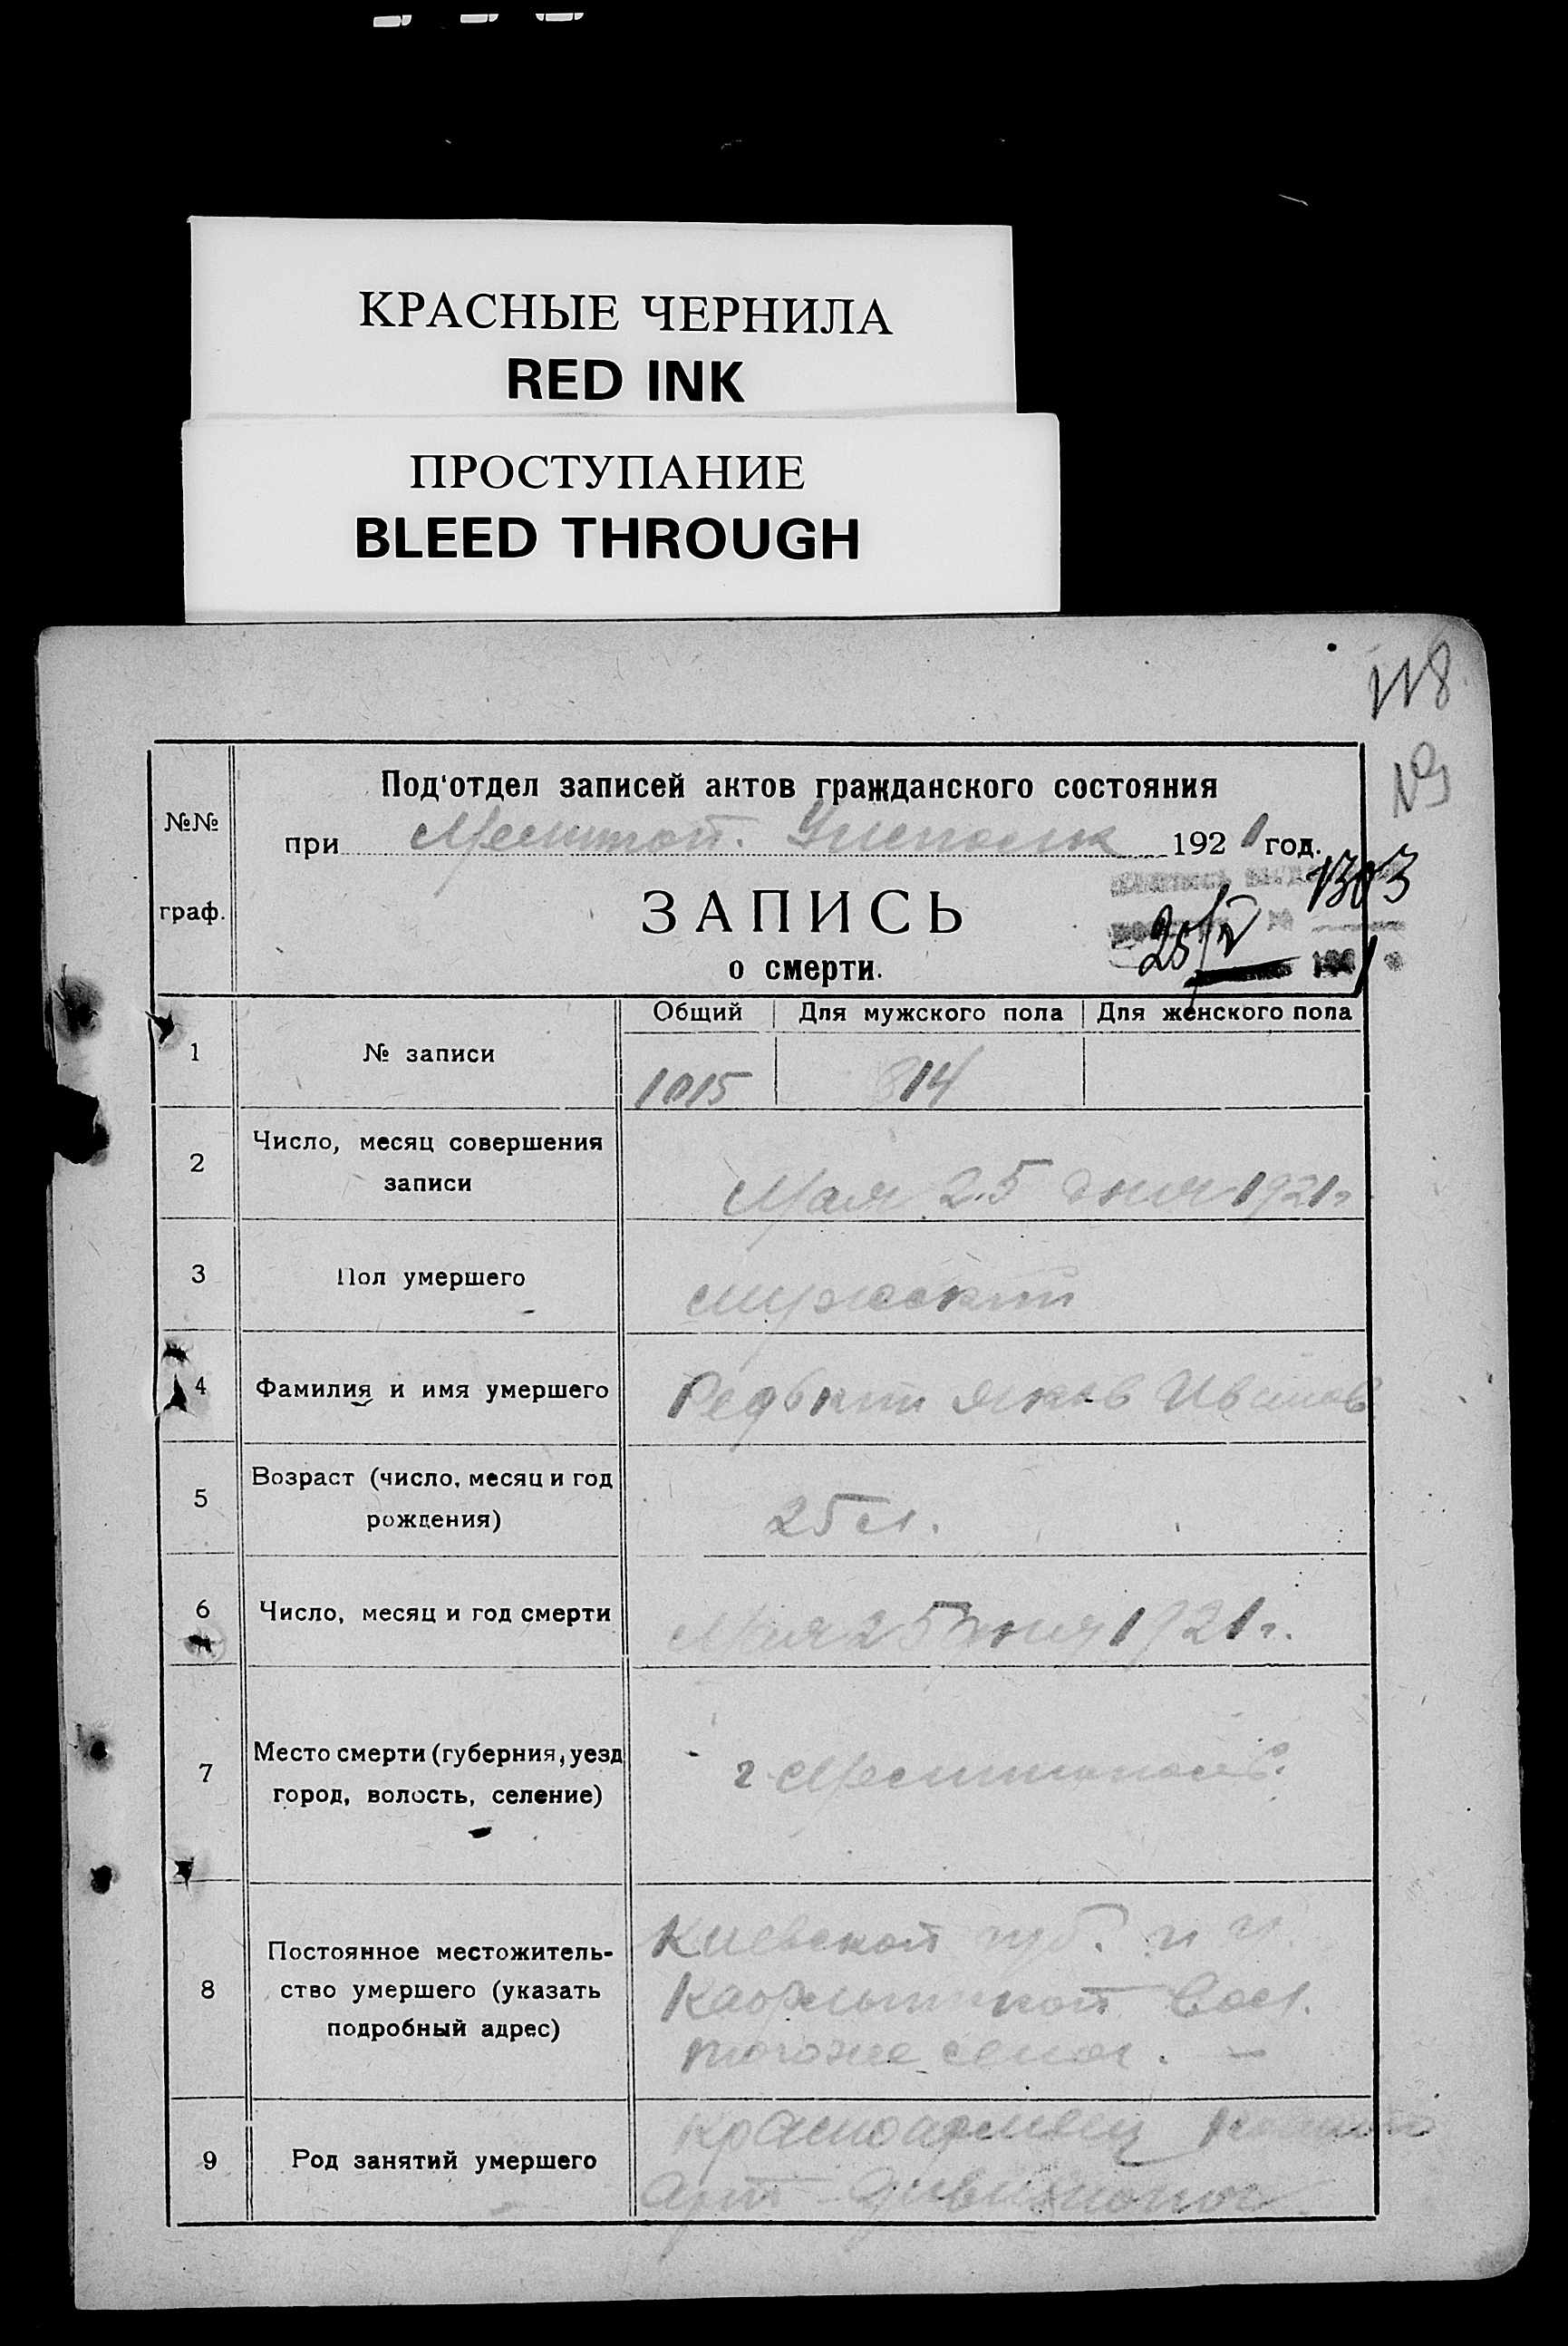 КРАСНЫЕ ЧЕРНИЛА
RED INK
ПРОСТУПАНИЕ
BLEED THROUGH
118
№№
граф.
Под‘отдел записей актов гражданского состояния
при 1921 год.
1303
ЗАПИСЬ
25/V
о смерти.
Общий Для мужского пола Для женского пола
1 № записи 1015 814
2 Число, месяц совершения
записи
Мая 25 дня 1921 г
3 Пол умершего мужской
4 Фамилия и имя умершего Редькин Яков Иванов
5 Возраст (число, месяц и год
рождения)
25 л.
6 Число, месяц и год смерти Мая 25 дня 1921 г.
7 Место смерти (губерния, уезд
город, волость, селение)
г.
8 Постоянное местожитель-
ство умершего (указать
подробный адрес)
Киевской губ. и у.
вол.
тогоже села. –
9 Род занятий умершего
красноармеец
Арт дивизиона